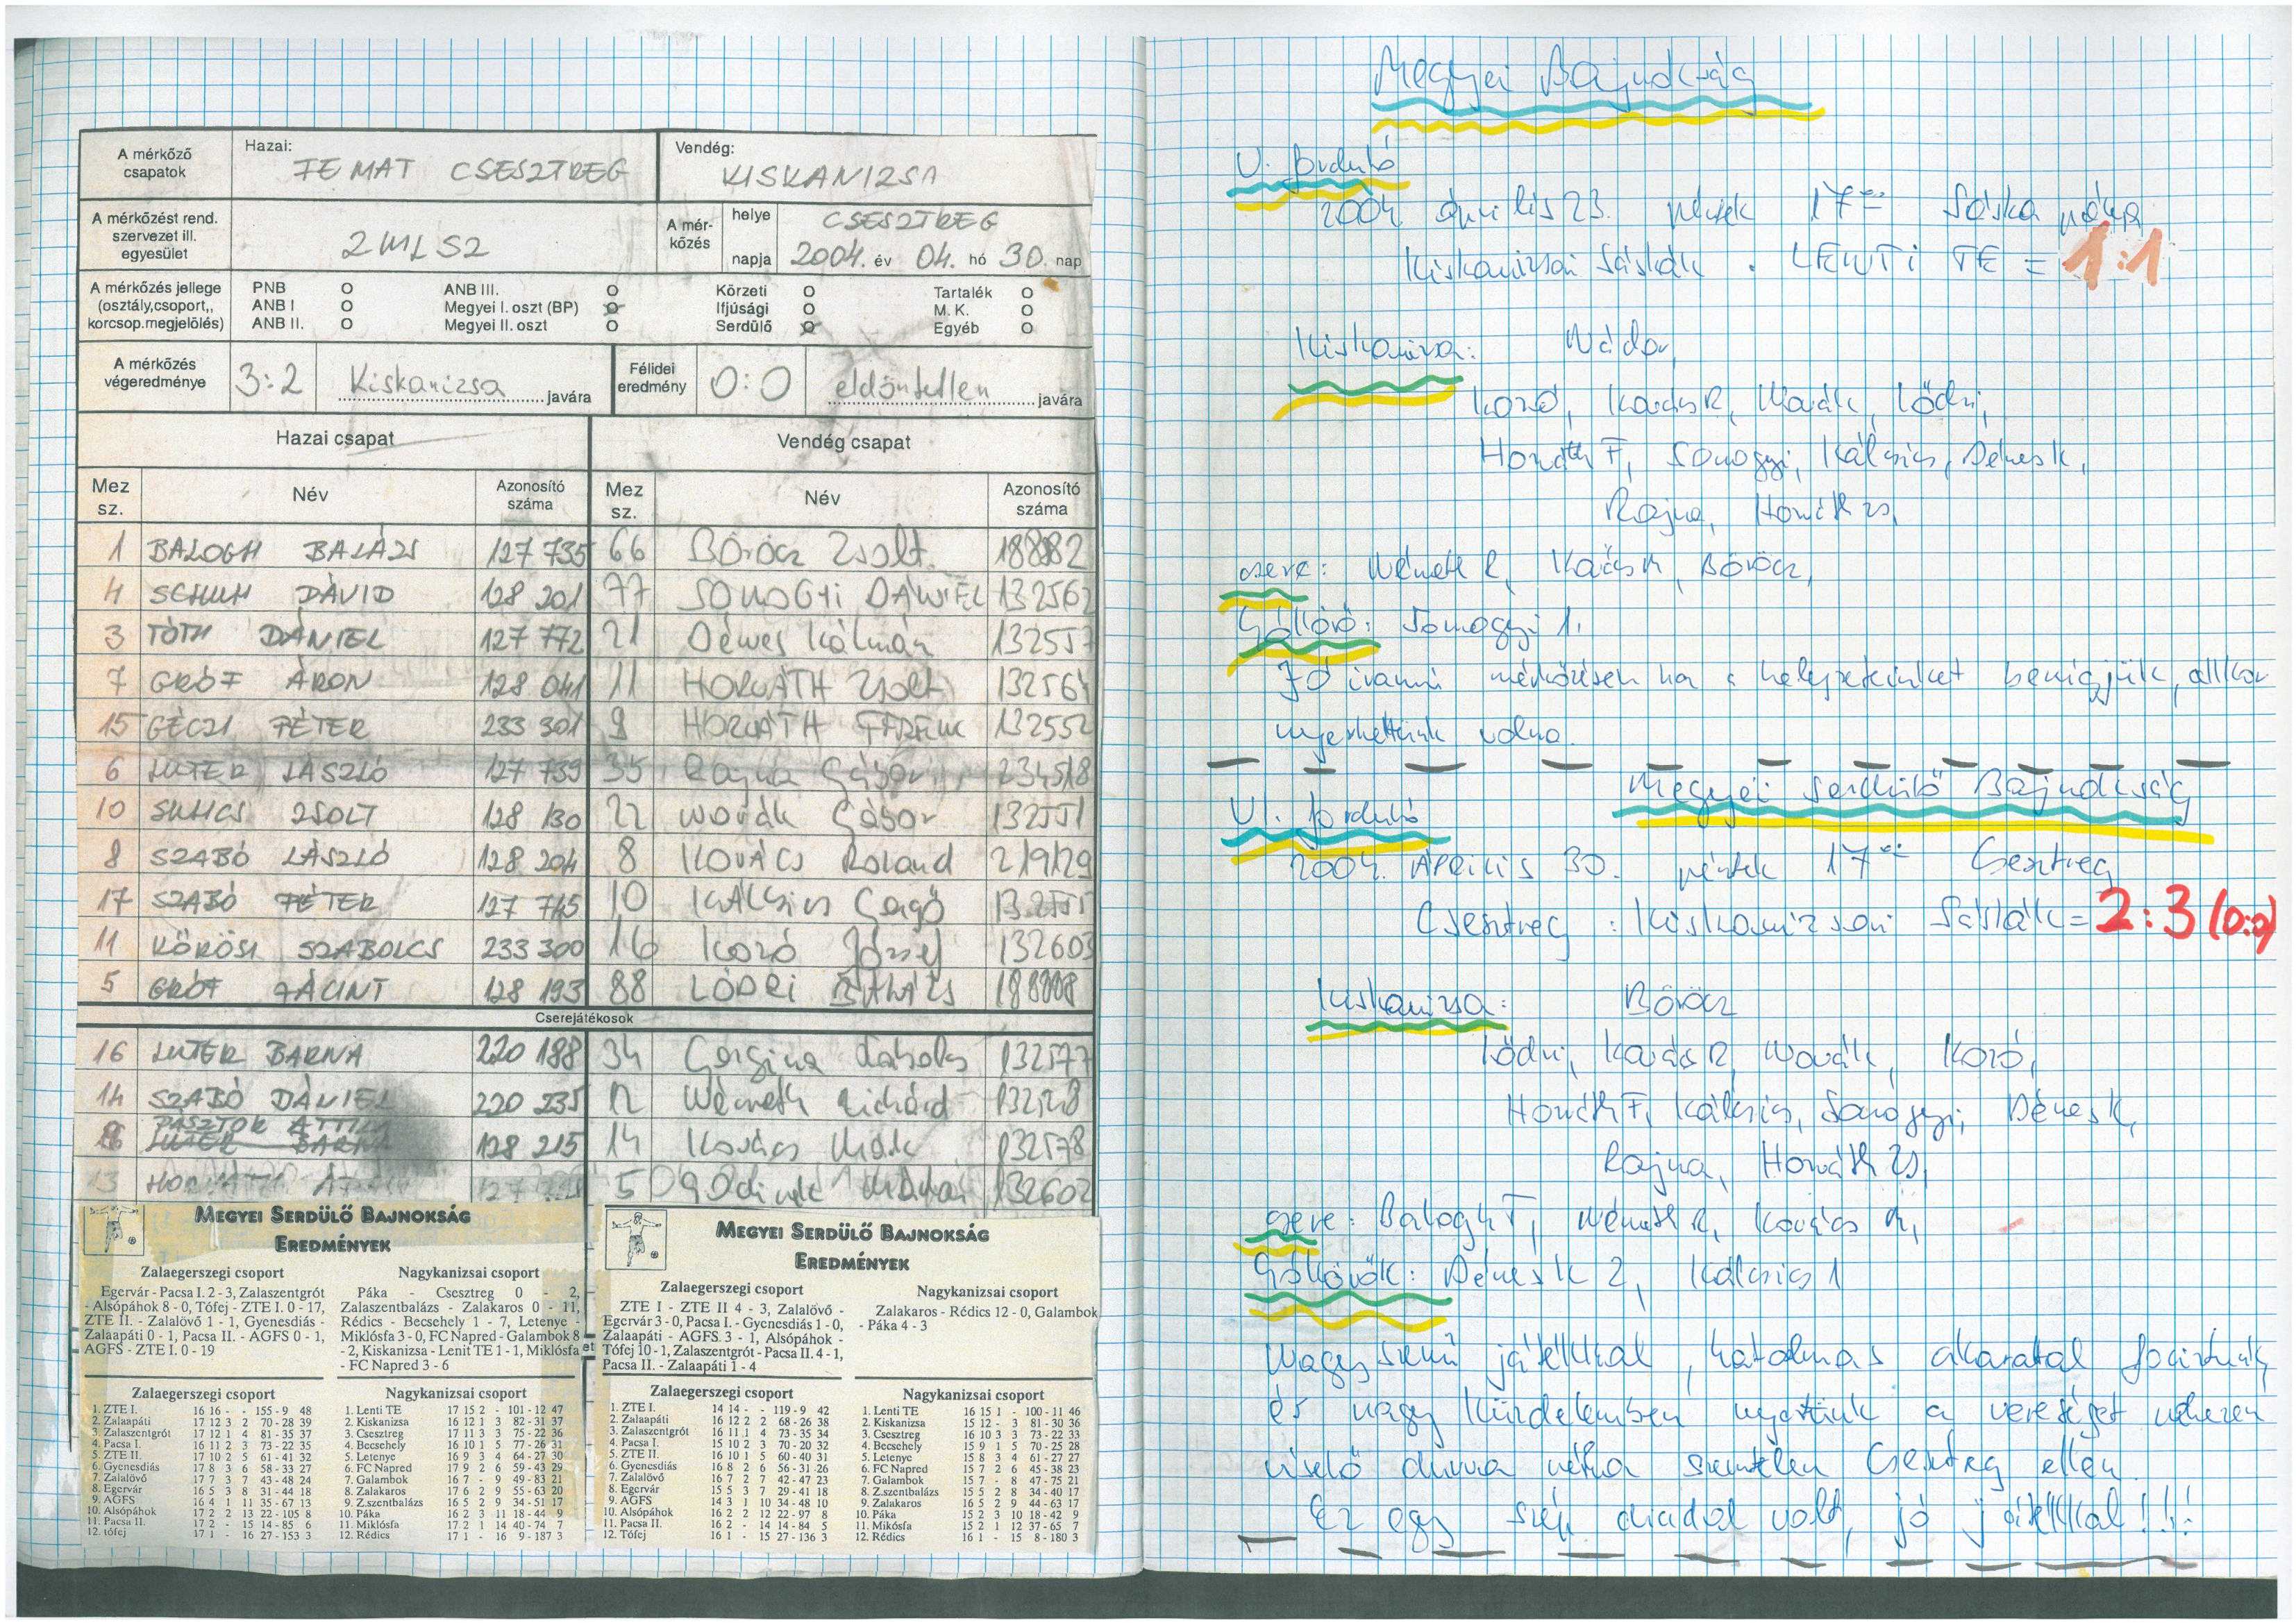 A mérkőző csapatok
Hazai:
FEMAT CSESZTREG
Vendég:
KISKANIZSA
A mérkőzést rend. szervezet ill. egyesület
ZMLSZ
A mér-kőzés
helye
CSESZTREG
napja
2004. év 04. hó 30. nap
A mérkőzés jellege (osztály,csoport,, korcsop.megjelölés)
PNB O ANB III. O Körzeti O Tartalék O
ANB I O Megyei I. oszt (BP) O Ifjúsági O M. K. O
ANB II. O Megyei II. oszt O Serdülő O Egyéb O
A mérkőzés végeredménye
3:2 Kiskanizsa javára
Félidei eredmény
0:0 eldöntetlen javára
Hazai csapat Vendég csapat
Mez sz. Név Azonosító száma Mez sz. Név Azonosító száma
1 BALOGH BALÁZS 127 735 66 Böröcz Zsolt
4 SCHUH DÁVID 128 201 77 SOMOGYI DÁNIEL 132562
3 TÓTH DÁNIEL 127 772 21 Dénes Kálmán 132557
7 GRÓF ÁRON 128 041 11 HORVÁTH Zsolt 132564
15 GÉCZI PÉTER 233 301 9 HORVÁTH FERENC 132552
6 LUTER LÁSZLÓ 127 739 35 Rajna Gábor 234518
10 SUHCS ZSOLT 128 130 22 Novák Gábor 132551
8 SZABÓ LÁSZLÓ 128 204 8 KOVÁCS Roland 219129
17 SZABÓ PÉTER 127 745 10 KÁLCSICS Gergő 132555
11 KŐRÖSI SZABOLCS 233 300 16 Kozó József 132603
5 GRÓF JÁCINT 128 193 88 LŐDRI BALÁZS
Cserejátékosok
16 LUTER BARNA 220 188 34 132577
14 SZABÓ DÁNIEL 220 235 12 Németh Richárd
PÁSZTOR ATTILA
LUTER BARNA 128 215 14 Kovács Márk 132578
13 5 132602
MEGYEI SERDÜLŐ BAJNOKSÁG
EREDMÉNYEK
Zalaegerszegi csoport
Egervár - Pacsa I. 2 - 3, Zalaszentgrót
- Alsópáhok 8 - 0, Tófej - ZTE I. 0 - 17,
ZTE II. - Zalalövő 1 - 1, Gyenesdiás -
Zalaapáti 0 - 1, Pacsa II. - AGFS 0 - 1,
AGFS - ZTE I. 0 - 19
Nagykanizsai csoport
Páka - Csesztreg 0 - 2,
Zalaszentbalázs - Zalakaros 0 - 11,
Rédics - Becsehely 1 - 7, Letenye -
Miklósfa 3 - 0, FC Napred - Galambok 8
- 2, Kiskanizsa - Lenit TE 1 - 1, Miklósfa
- FC Napred 3 - 6
Zalaegerszegi csoport
1. ZTE I. 16 16 - - 155 - 9 48
2. Zalaapáti 17 12 3 2 70 - 28 39
3. Zalaszentgrót 17 12 1 4 81 - 35 37
4. Pacsa I. 16 11 2 3 73 - 22 35
5. ZTE II. 17 10 2 5 61 - 41 32
6. Gyenesdiás 17 8 3 6 58 - 33 27
7. Zalalövő 17 7 3 7 43 - 48 24
8. Egervár 16 5 3 8 31 - 44 18
9. AGFS 16 4 1 11 35 - 67 13
10. Alsópáhok 17 2 2 13 22 - 105 8
11. Pacsa II. 17 2 - 15 14 - 85 6
12. tófej 17 1 - 16 27 - 153 3
Nagykanizsai csoport
1. Lenti TE 17 15 2 - 101 - 12 47
2. Kiskanizsa 16 12 1 3 82 - 31 37
3. Csesztreg 17 11 3 3 75 - 22 36
4. Becsehely 16 10 1 5 77 - 26 31
5. Letenye 16 9 3 4 64 - 27 30
6. FC Napred 17 9 2 6 59 - 43 29
7. Galambok 16 7 - 9 49 - 83 21
8. Zalakaros 17 6 2 9 55 - 63 20
9. Z.szentbalázs 16 5 2 9 34 - 51 17
10. Páka 16 2 3 11 18 - 44 9
11. Miklósfa 17 2 1 14 40 - 74 7
12. Rédics 17 1 - 16 9 - 187 3
MEGYEI SERDÜLŐ BAJNOKSÁG
EREDMÉNYEK
Zalaegerszegi csoport
ZTE I - ZTE II 4 - 3, Zalalövő -
Egervár 3 - 0, Pacsa I. - Gyenesdiás 1 - 0,
Zalaapáti - AGFS. 3 - 1, Alsópáhok -
Tófej 10 - 1, Zalaszentgrót - Pacsa II. 4 - 1,
Pacsa II. - Zalaapáti 1 - 4
Nagykanizsai csoport
Zalakaros - Rédics 12 - 0, Galambok
- Páka 4 - 3
Zalaegerszegi csoport
1. ZTE I. 14 14 - - 119 - 9 42
2. Zalaapáti 16 12 2 2 68 - 26 38
3. Zalaszentgrót 16 11 1 4 73 - 35 34
4. Pacsa I. 15 10 2 3 70 - 20 32
5. ZTE II. 16 10 1 5 60 - 40 31
6. Gyenesdiás 16 8 2 6 56 - 31 26
7. Zalalövő 16 7 2 7 42 - 47 23
8. Egervár 15 5 3 7 29 - 41 18
9. AGFS 14 3 1 10 34 - 48 10
10. Alsópáhok 16 2 2 12 22 - 97 8
11. Pacsa II. 16 2 - 14 14 - 84 5
12. Tófej 16 1 - 15 27 - 136 3
Nagykanizsai csoport
1. Lenti TE 16 15 1 - 100 - 11 46
2. Kiskanizsa 15 12 - 3 81 - 30 36
3. Csesztreg 16 10 3 3 73 - 22 33
4. Becsehely 15 9 1 5 70 - 25 28
5. Letenye 15 8 3 4 61 - 27 27
6. FC Napred 15 7 2 6 45 - 38 23
7. Galambok 15 7 - 8 47 - 75 21
8. Z.szentbalázs 15 5 2 8 34 - 40 17
9. Zalakaros 16 5 2 9 44 - 63 17
10. Páka 15 2 3 10 18 - 42 9
11. Mikósfa 15 2 1 12 37 - 65 7
12. Rédics 16 1 - 15 8 - 180 3
Megyei Bajnokság
V. forduló
2004 április 23. péntek 17°° Sáska pálya
Kiskanizsai Sáskák . LENTI TE = 1:1
Kiskanizsa: Nádor,
Kozó, Kovács R, Novák, Lődri,
Horváth F, Somogyi, Kálcsics, Dénes K,
Rajna, Horváth Zs,
csere: Németh R, Kovács M, Böröcz,
Góllövő: Somogyi 1.
Jó iramú mérkőzésen ha a helyzeteinket berúgjuk, akkor
nyerhettünk volna.
Megyei Serdülő Bajnokság
VI. forduló
2004. ÁPRILIS 30. péntek 17°° Csesztreg
Csesztreg : Kiskanizsai Sáskák = 2:3 (0:0)
Kiskanizsa: Böröcz
Lődri, Kovács R, Novák, Kozó,
Horváth F, Kálcsics, Somogyi, Dénes K,
Rajna, Horváth Zs,
csere: Balogh T, Németh R, Kovács M,
Góllövők: Dénes K 2, Kálcsics 1
Nagyszerű játékkal, hatalmas akaratal fociztunk
és nagy küzdelemben nyertünk a vereséget nehezen
viselő durva néha szemtelen Csesztreg ellen.
Ez egy szép diadal volt, jó játékkal!!!